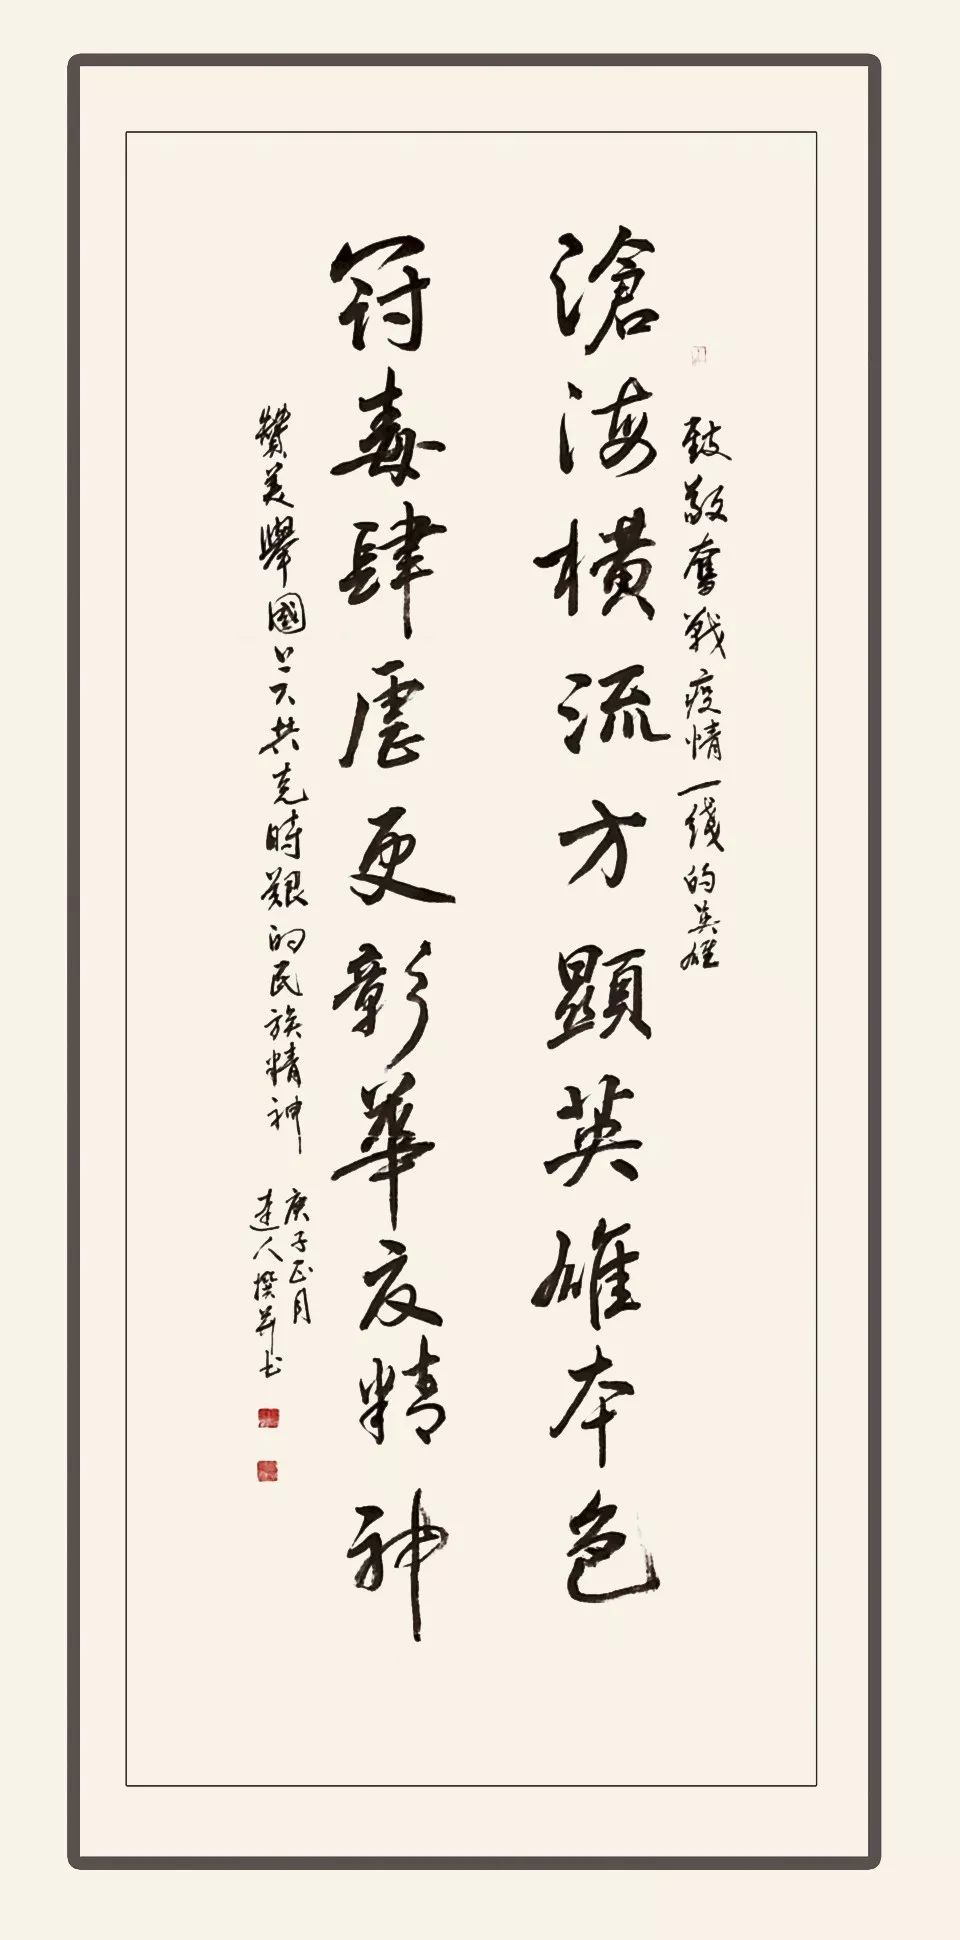 致敬奮戰疫情一綫的英雄
滄海橫流方顯英雄本色
冠毒肆虐更彰華夏精神
贊美舉國上下共克時艱的民族精神
庚子正月
達人撰并书